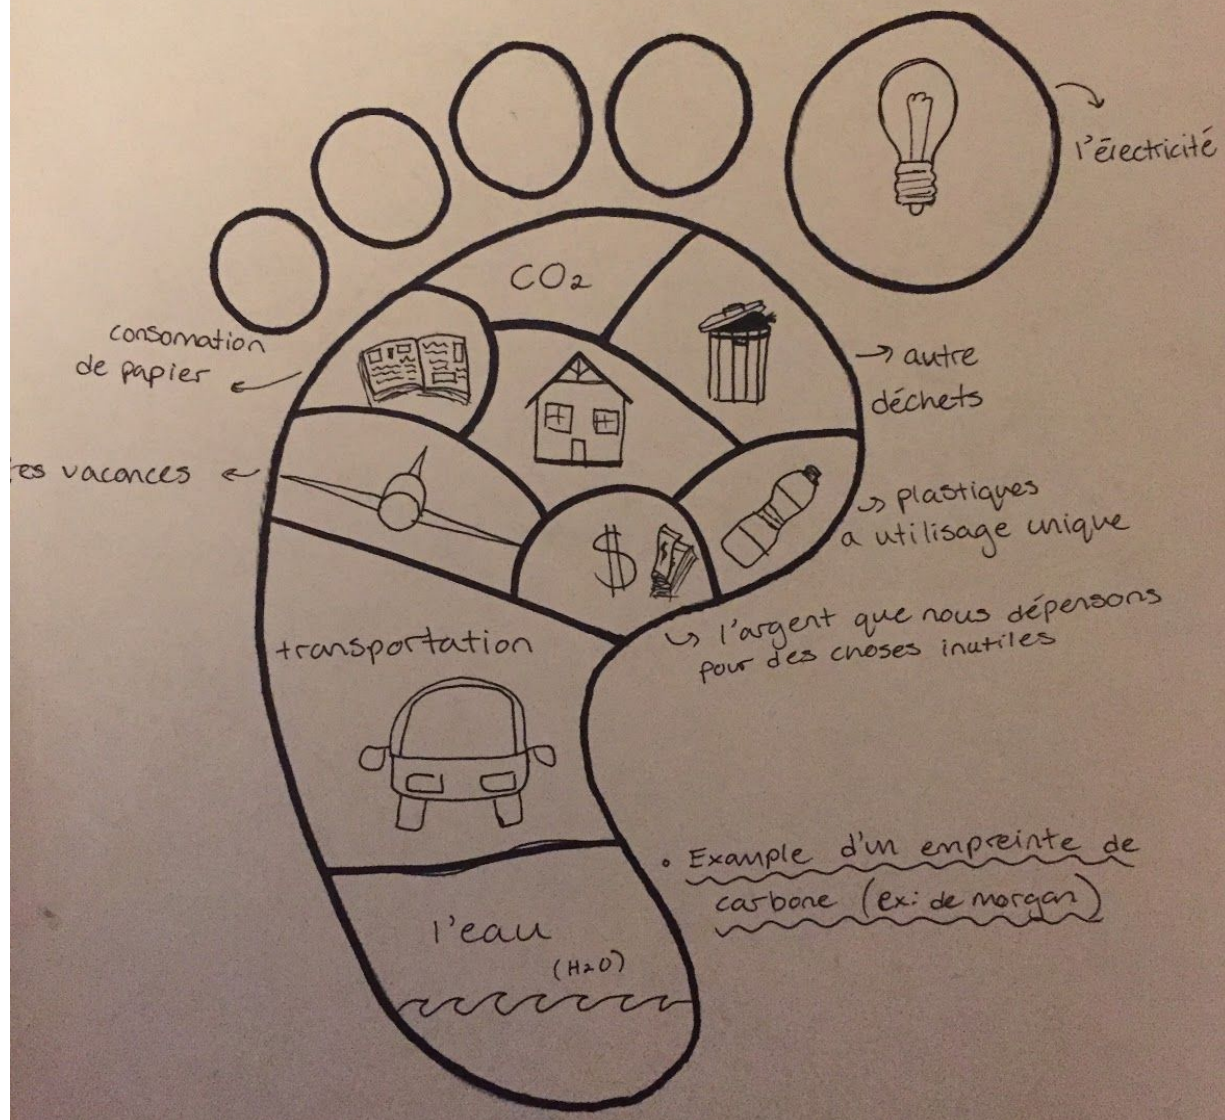 l'électricité
CO2
consomation
de papier
autre
déchets
vacances
plastiques
a utilisage unique
$
l'argent que nous dépensons
pour des choses inutiles
transportation
Example d'un empreinte de
carbone (ex: de morgan)
l'eau
(H2O)